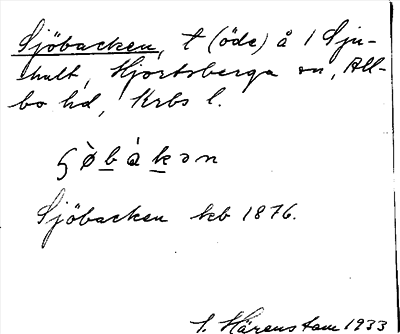 Sjöbacken, t (öde) å 1 Sju-
hult, Hjortsberga sn, All-
bo hd, Krbs l.
Sjöbacken kb 1876.
I. Härenstam 1933